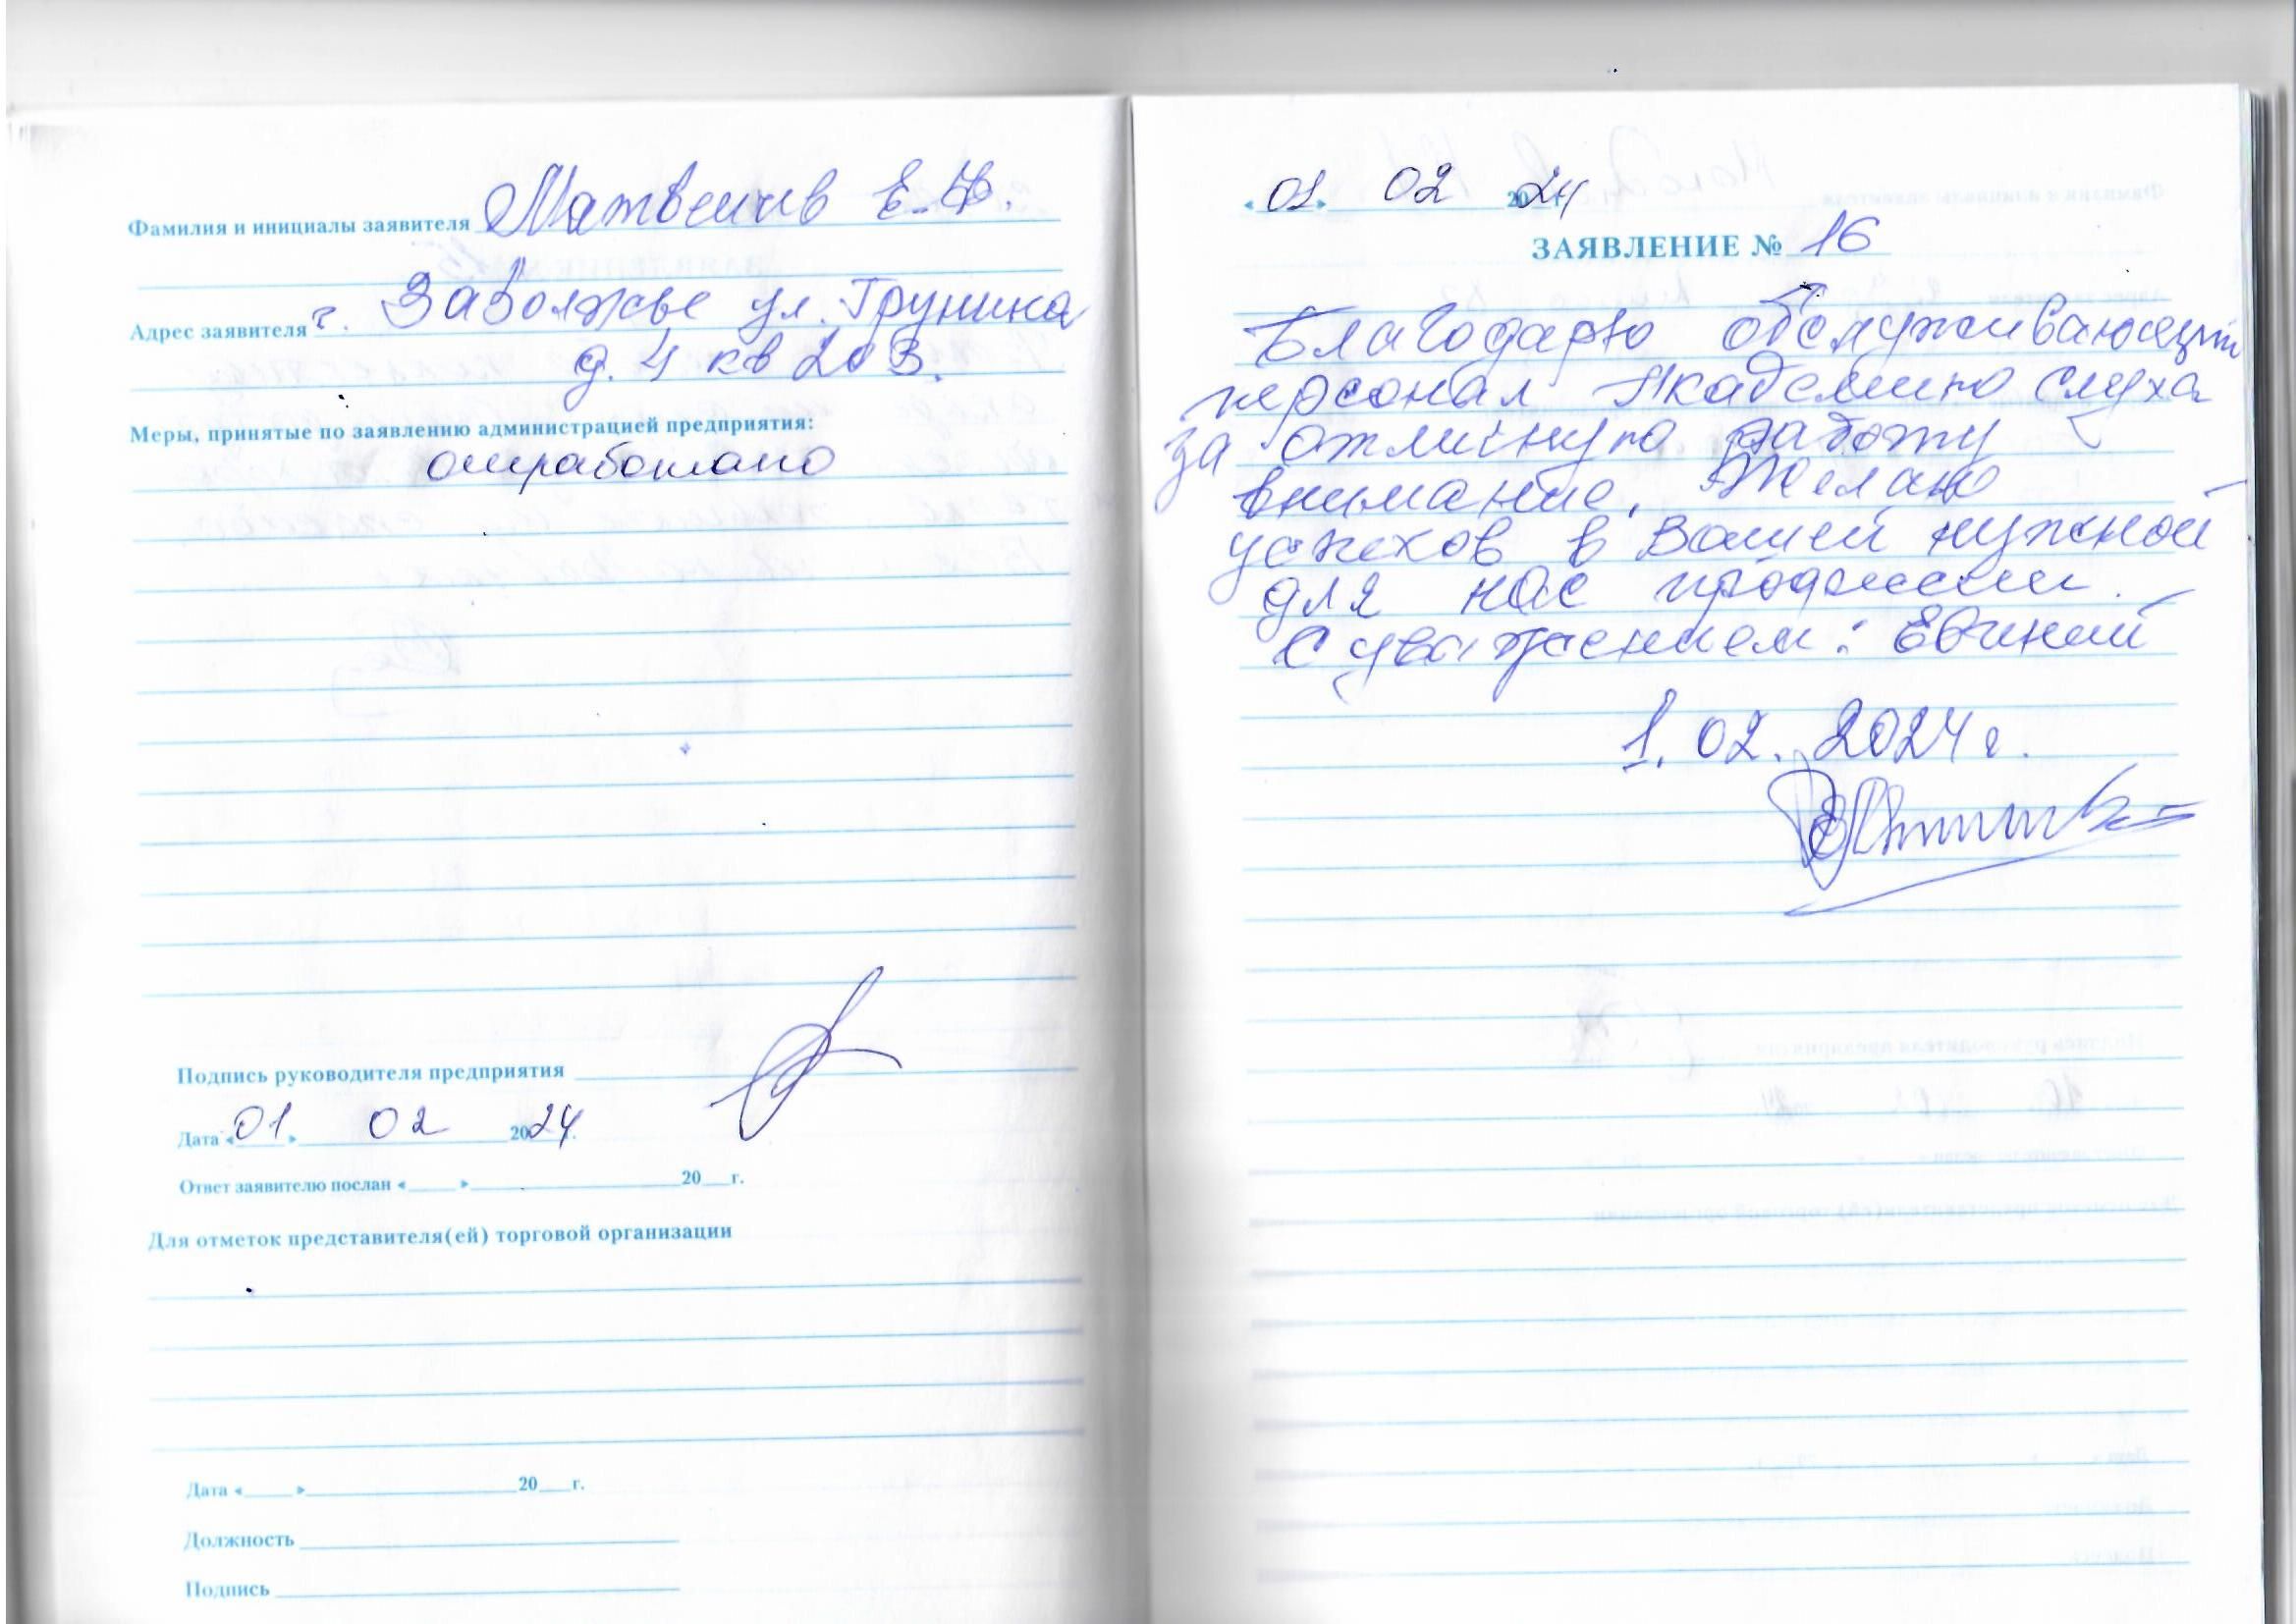 Фамилия и инициалы заявителя Матвеичев Е.Ф.
Адрес заявителя г. Заволжье ул. Грунина
д. 4 кв 203.
Меры, принятые по заявлению администрацией предприятия:
отработано
Подпись руководителя предприятия
Дата «01» 02 2024.
Ответ заявителю послан « » 20 г.
Для отметок представителя(ей) торговой организации
Дата « » 20 г.
Должность
Подпись
«01» 02 2024
ЗАЯВЛЕНИЕ № 16
Благодарю обслуживающий
персонал Академию слуха
за отличную работу
внимание. Желаю
успехов в Вашей нужной
для нас профессии.
С уважением: Евгений
1.02.2024 г.